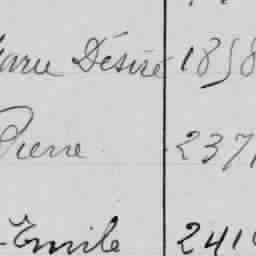 Marie Désiré 1858
Pierre 237
Emile 241